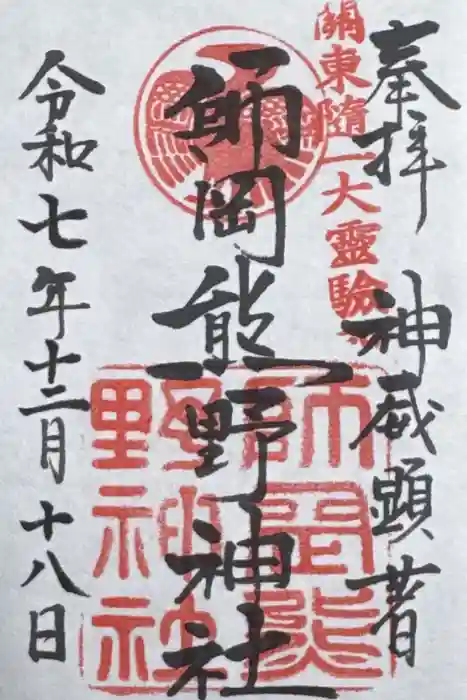 奉拝
神威顕著
關東随一大霊験
師岡熊野神社
師岡熊野神社
令和七年十二月十八日